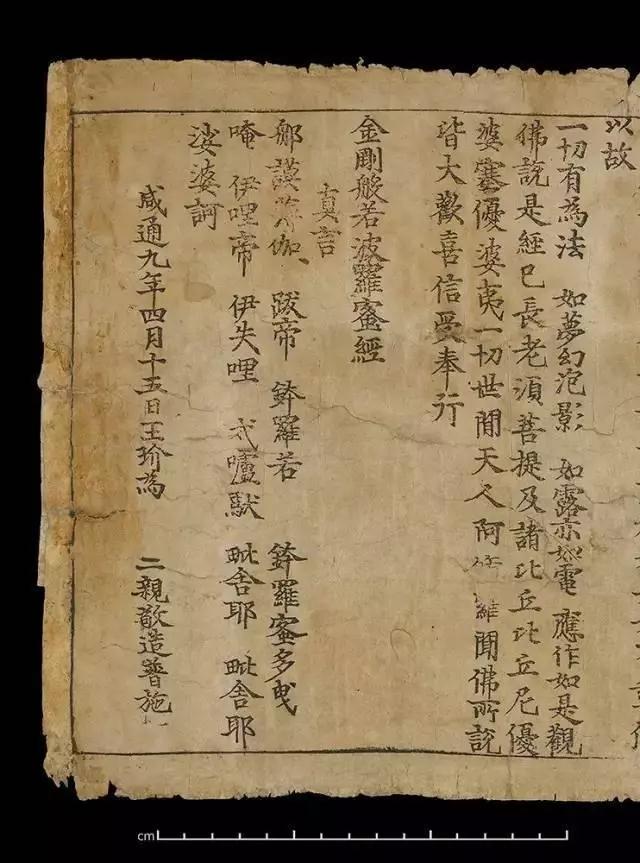 以故
一切有為法 如夢幻泡影 如露亦如電 應作如是觀
佛說是經已長老須菩提及諸比丘比丘尼優
婆塞優婆夷一切世間天人阿 羅聞佛所說
皆大歡喜信受奉行
金剛般若波羅蜜經
真言
那謨 伽 跋帝 鉢羅若 鉢羅蜜多曳
唵 伊哩帝 伊失哩 戍嚧馱 毗舍耶 毗舍耶
娑婆訶
咸通九年四月十五日王玠為 二親敬造普施
cm